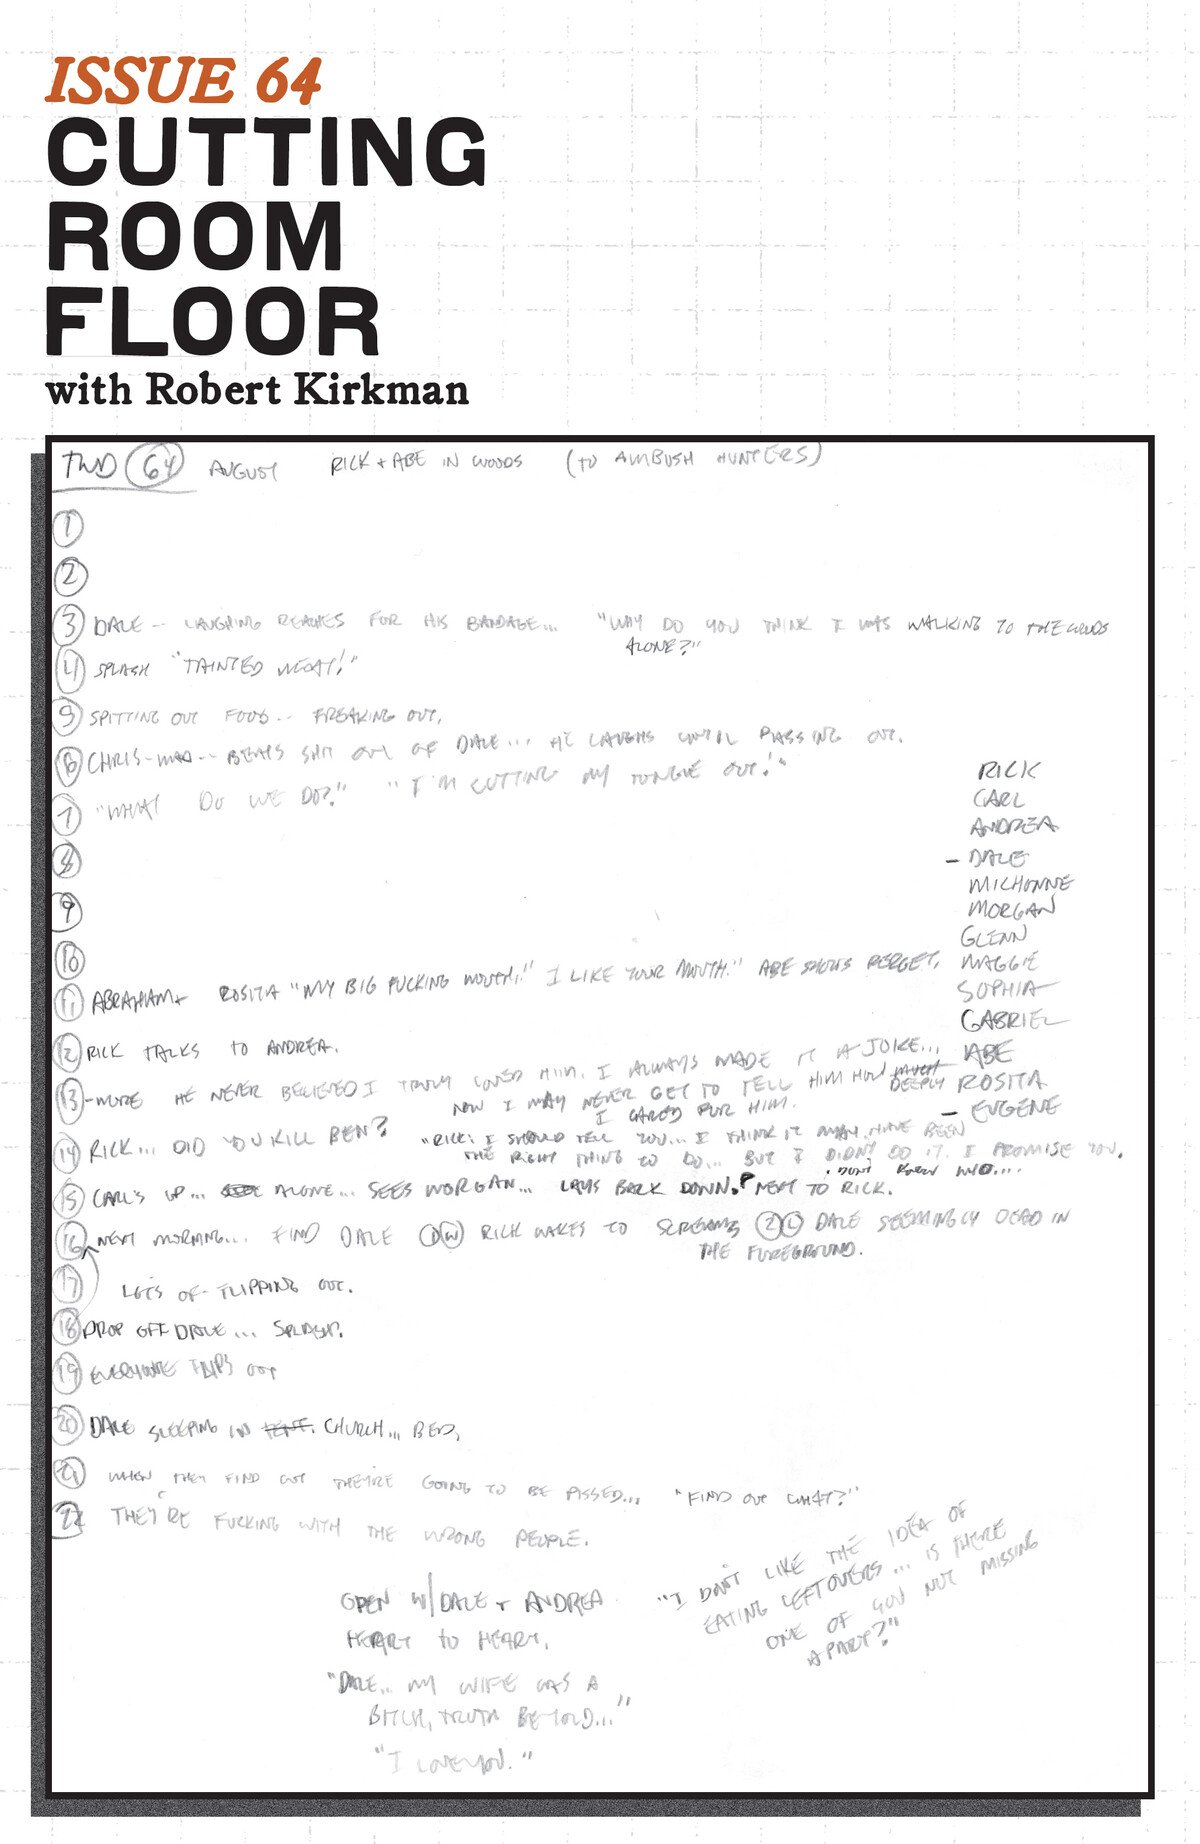 ISSUE 64
CUTTING
ROOM
FLOOR
with Robert Kirkman
TWD 64 AUGUST RICK + ABE IN WOODS (TO AMBUSH HUNTERS)
1
2
3 DALE -- LAUGHING REACHES FOR HIS BANDAGE... "WHY DO YOU THINK I WAS WALKING TO THE WOODS
ALONE?"
4 SPLASH "TAINTED MEAT!"
5 SPITTING OUT FOOD -- FREAKING OUT.
6 CHRIS-MAD-- BEATS SHIT OUT OF DALE... HE LAUGHS UNTIL PASSING OUT.
7 "WHAT DO WE DO?" "I'M CUTTING MY TONGUE OUT!"
8
9
10
11 ABRAHAM + ROSITA "MY BIG FUCKING MOUTH." I LIKE YOUR MOUTH." ABE SHOWS REGRET.
12 RICK TALKS TO ANDREA.
13 -MORE HE NEVER BELIEVED I TRULY LOVED HIM. I ALWAYS MADE IT A JOKE...
NOW I MAY NEVER GET TO TELL HIM HOW MUCH DEEPLY
I CARED FOR HIM.
14 RICK... DID YOU KILL BEN? "RICK: I SHOULD TELL YOU... I THINK IT MAY HAVE BEEN
THE RIGHT THING TO DO... BUT I DIDN'T DO IT. I PROMISE YOU.
I DON'T KNOW WHO....
15 CARL'S UP... ALONE... SEES MORGAN... LAYS BACK DOWN. NEXT TO RICK.
16 NEXT MORNING... FIND DALE RICK WAKES TO SCREAMS DALE SEEMINGLY DEAD IN
THE FOREGROUND.
17 LOTS OF FLIPPING OUT.
18 DROP OFF DALE... SPLASH.
19 EVERYONE FLIPS OUT
20 DALE SLEEPING IN TENT. CHURCH... BED.
21 WHEN THEY FIND OUT THEY'RE GOING TO BE PISSED... "FIND OUT WHAT?"
22 THEY'RE FUCKING WITH THE WRONG PEOPLE.
RICK
CARL
ANDREA
- DALE
MICHONNE
MORGAN
GLENN
MAGGIE
SOPHIA
GABRIEL
ABE
ROSITA
- EUGENE
OPEN W/ DALE + ANDREA
HEART TO HEART.
"DALE... MY WIFE WAS A
BITCH, TRUTH BE TOLD..."
"I LOVE YOU."
"I DON'T LIKE THE IDEA OF
EATING LEFTOVERS... IS THERE
ONE OF YOU NOT MISSING
A PART?"